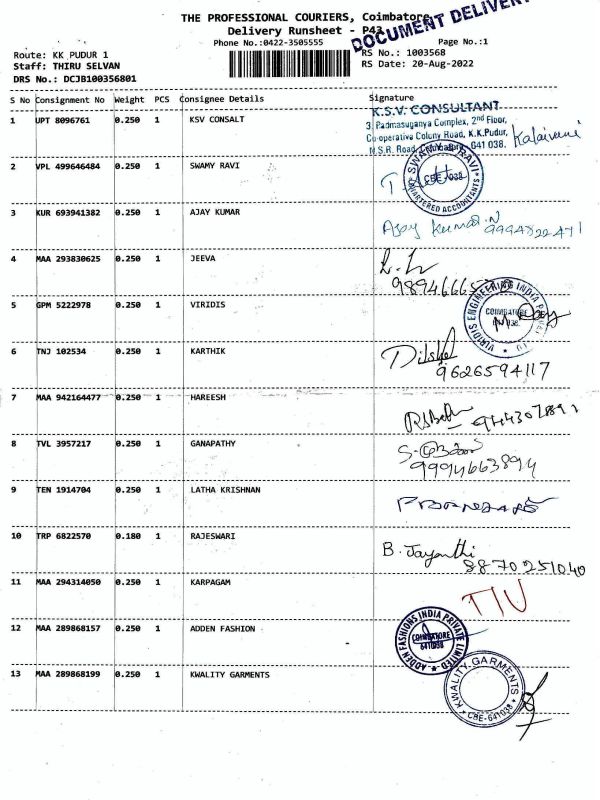 THE PROFESSIONAL COURIERS, Coimbatore
Delivery Runsheet - P43
DOCUMENT DELIVERY
Phone No.:0422-3505555
Page No.:1
Route: KK PUDUR 1
RS No.: 1003568
Staff: THIRU SELVAN
RS Date: 20-Aug-2022
DRS No.: DCJB100356801
S No Consignment No Weight PCS Consignee Details Signature
1 UPT 8096761 0.250 1 KSV CONSALT
K.S.V. CONSULTANT
3, Padmasuganya Complex, 2nd Floor,
Co-operative Colony Road, K.K.Pudur,
N.S.R. Road, Coimbatore, 641 038.
Kalaivani
2 VPL 499646484 0.250 1 SWAMY RAVI
SWAMY & RAVI
CBE - 038
CHARTERED ACCOUNTANTS
3 KUR 693941382 0.250 1 AJAY KUMAR
Ajay Kumar.N
9994822471
4 MAA 293830625 0.250 1 JEEVA
5 GPM 5222978 0.250 1 VIRIDIS
VIRIDIS ENGINEERING INDIA
COIMBATORE
6 TNJ 102534 0.250 1 KARTHIK
9626594117
7 MAA 942164477 0.250 1 HAREESH
8 TVL 3957217 0.250 1 GANAPATHY
9994663894
9 TEN 1914704 0.250 1 LATHA KRISHNAN
10 TRP 6822570 0.180 1 RAJESWARI
B. Jayanthi
8870251040
11 MAA 294314050 0.250 1 KARPAGAM
12 MAA 289868157 0.250 1 ADDEN FASHION
ADDEN FASHIONS INDIA PRIVATE LIMITED
COIMBATORE
641038
13 MAA 289868199 0.250 1 KWALITY GARMENTS
KWALITY GARMENTS
CBE-641038